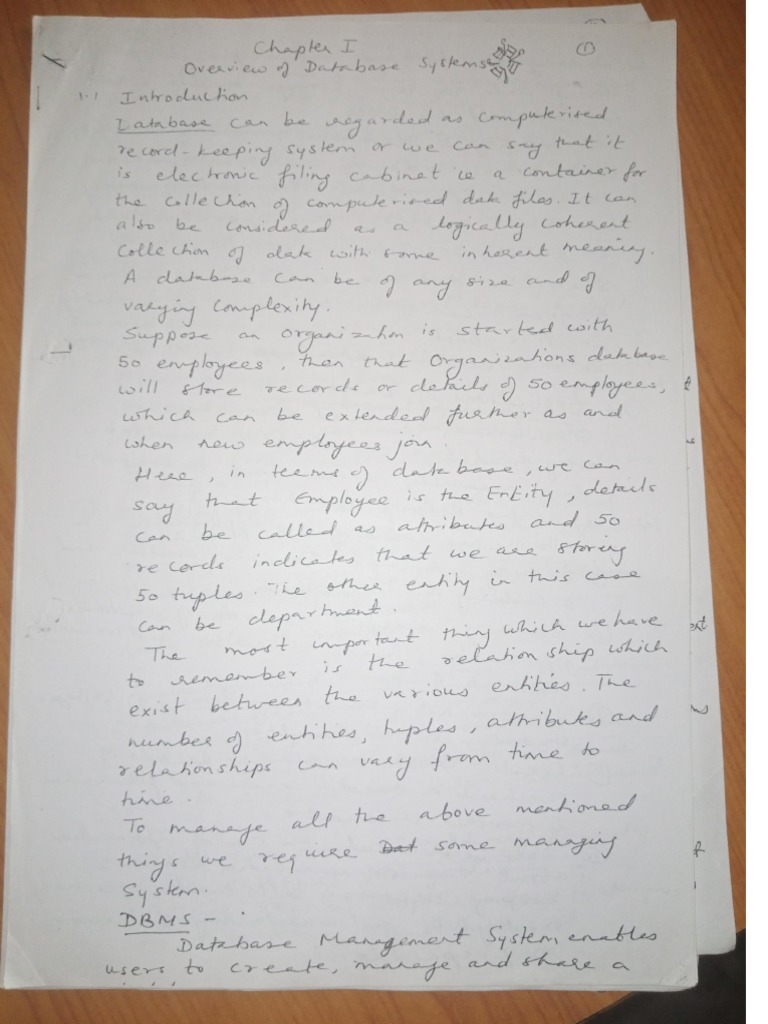 Chapter I
①
Overview of Database Systems
1.1 Introduction
Database can be regarded as computerised
record-keeping system or we can say that it
is electronic filing cabinet ie a container for
the collection of computerised data files. It can
also be considered as a logically coherent
collection of data with some inherent meaning.
A database can be of any size and of
varying complexity.
Suppose an organization is started with
50 employees, then that Organizations database
will store records or details of 50 employees,
which can be extended further as and
when new employees join.
Here, in terms of database, we can
say that Employee is the Entity, details
can be called as attributes and 50
records indicates that we are storing
50 tuples. The other entity in this case
can be department.
The most important thing which we have
to remember is the relationship which
exist between the various entities. The
number of entities, tuples, attributes and
relationships can vary from time to
time.
To manage all the above mentioned
things we require Dat some managing
System.
DBMS -
Database Management System enables
users to create, manage and share a